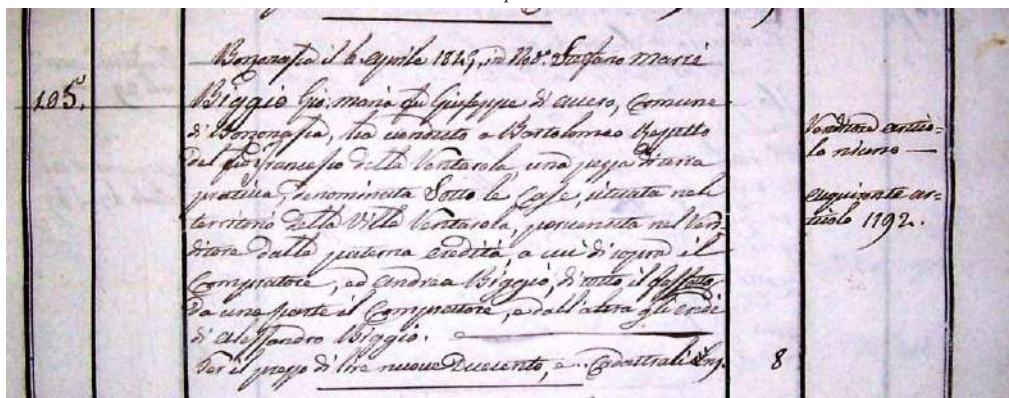 Borzonasca il 6 Aprile 1849, in Not.º Steffano Marrè
105.
Biggio Gio: Maria fu Giuseppe di Acero, Comune
di Borzonasca, ha venduto a Bartolomeo Repetto
del fu Francesco della Ventarola, una pezza di terra
prativa, denominata Sotto le Case, situata nel
territorio della Villa Ventarola, pervenuta nel Ven=
ditore dalla paterna eredità, a cui di sopra il
Compratore, ed Andrea Biggio, di sotto il fossato,
da una parte il Compratore, e dall'altra gli eredi
di Alessandro Biggio.
Per il prezzo di lire nuove Duecento, e Cadastrali
8
Venditore artico=
lo niuno —
Acquirente ar=
ticolo 1192.